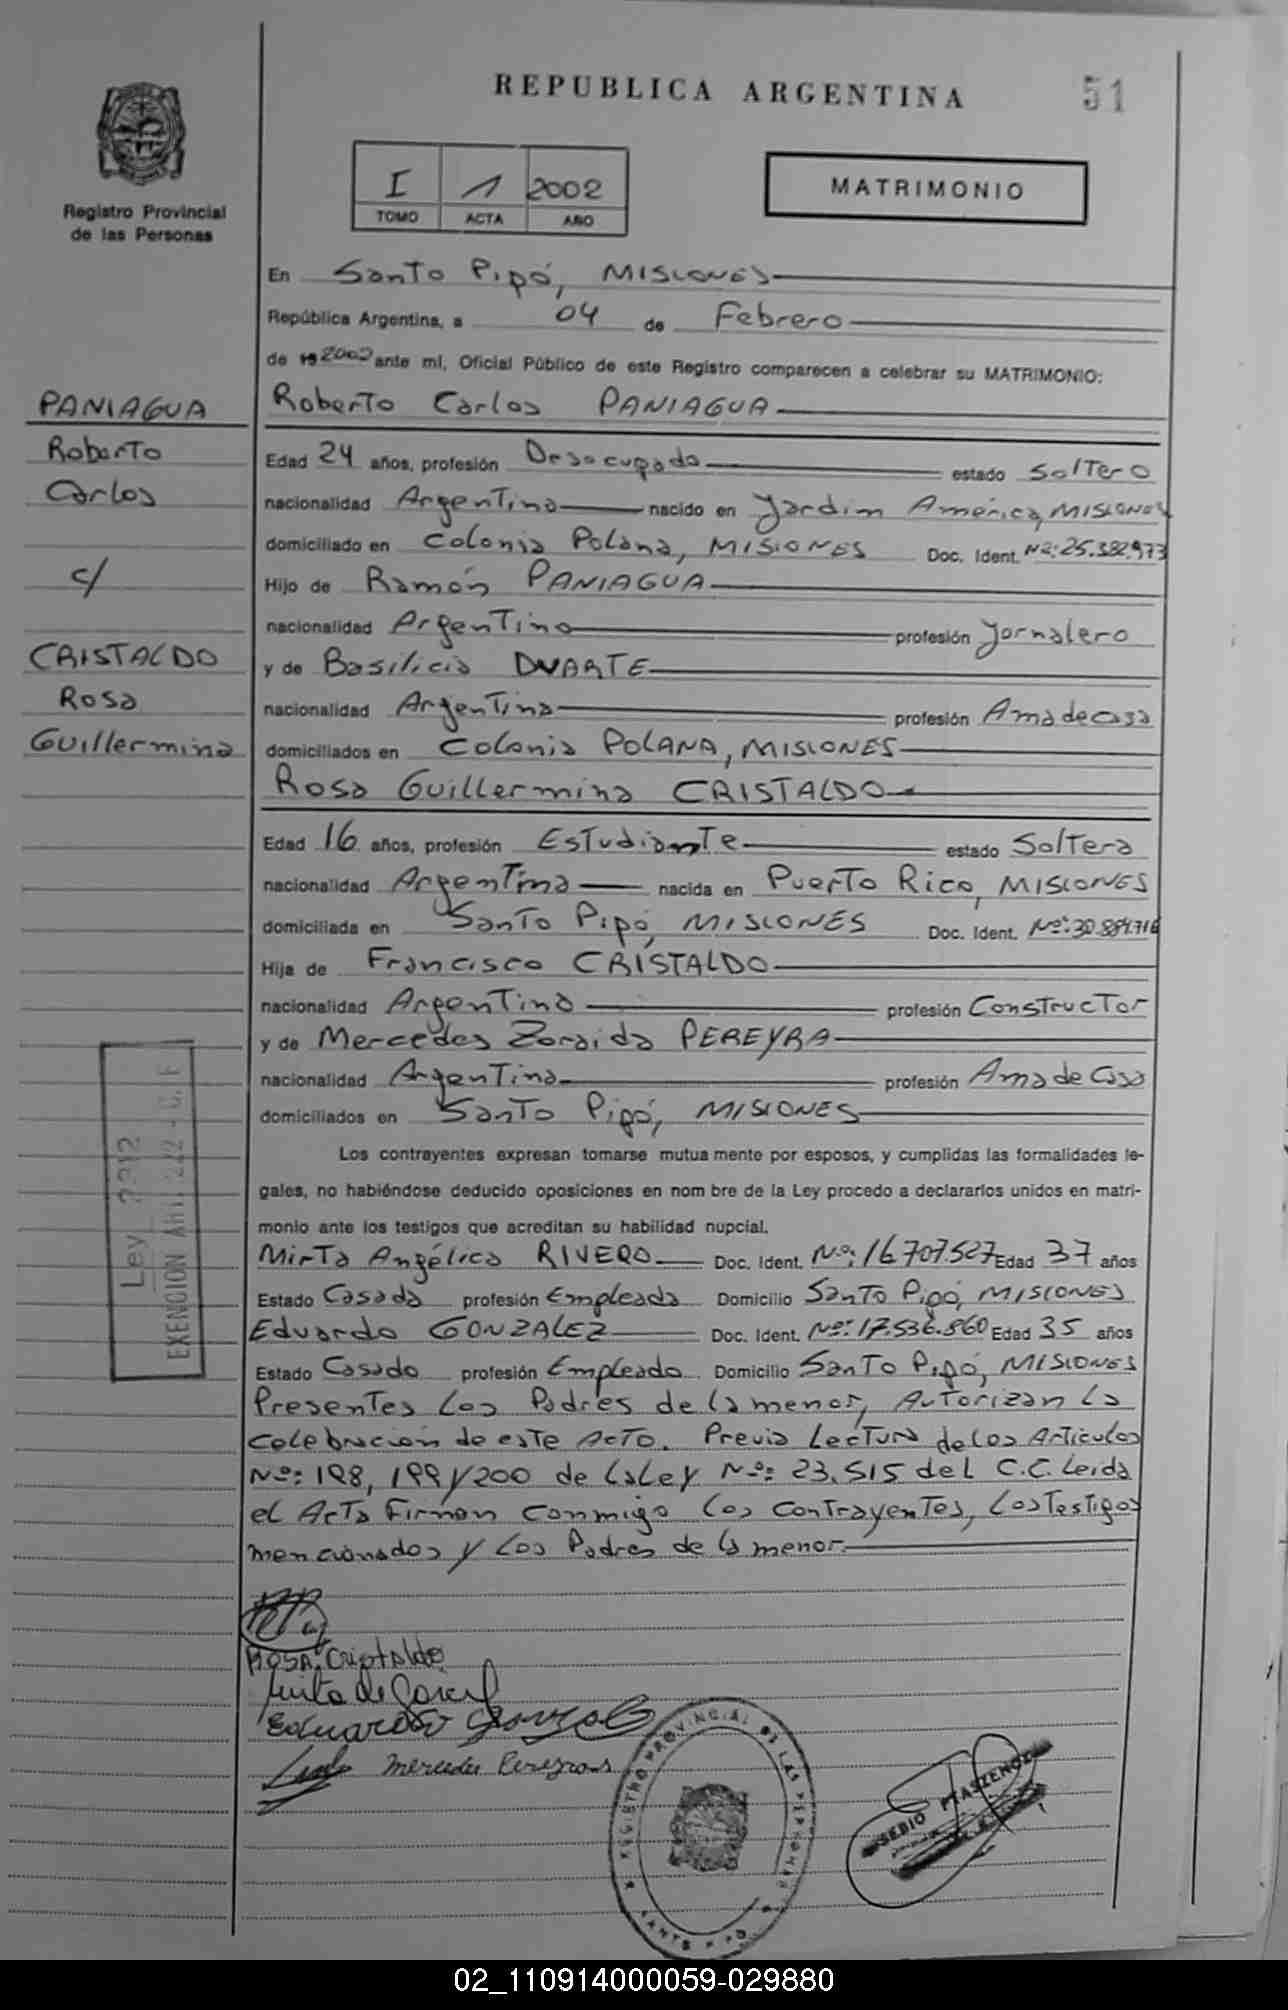 REPUBLICA ARGENTINA
51
Registro Provincial
de las Personas
I 1 2002
TOMO ACTA AÑO
MATRIMONIO
En Santo Pipó, MISIONES
República Argentina, a 04 de Febrero
de 19 2002 ante mí, Oficial Público de este Registro comparecen a celebrar su MATRIMONIO:
PANIAGUA
Roberto
Carlos
c/
CRISTALDO
Rosa
Guillermina
Roberto Carlos PANIAGUA
Edad 24 años, profesión Desocupado estado Soltero
nacionalidad Argentina nacido en Jardim América, MISIONES
domiciliado en Colonia Polana, MISIONES Doc. Ident. Nº: 25.382.973
Hijo de Ramón PANIAGUA
nacionalidad Argentino profesión Jornalero
y de Basilicia DUARTE
nacionalidad Argentina profesión Ama de casa
domiciliados en Colonia POLANA, MISIONES
Rosa Guillermina CRISTALDO
Edad 16 años, profesión Estudiante estado Soltera
nacionalidad Argentina nacida en Puerto Rico, MISIONES
domiciliada en Santo Pipó, MISIONES Doc. Ident. Nº: 30.884.716
Hija de Francisco CRISTALDO
nacionalidad Argentino profesión Constructor
y de Mercedes Zoraida PEREYRA
nacionalidad Argentina profesión Ama de Casa
domiciliados en Santo Pipó, MISIONES
Los contrayentes expresan tomarse mutua mente por esposos, y cumplidas las formalidades le-
gales, no habiéndose deducido oposiciones en nom bre de la Ley procedo a declararlos unidos en matri-
monio ante los testigos que acreditan su habilidad nupcial.
Mirta Angélica RIVERO Doc. Ident. Nº: 16.707.527 Edad 37 años
Estado Casada profesión Empleada Domicilio Santo Pipó, MISIONES
Eduardo GONZALEZ Doc. Ident. Nº: 17.536.860 Edad 35 años
Estado Casado profesión Empleado Domicilio Santo Pipó, MISIONES
Presentes los Padres de la menor, Autorizan la
celebración de este Acto. Previa Lectura de los Articulos
Nº: 198, 199 y 200 de la Ley Nº: 23.515 del C.C. Leida
el Acta Firman conmigo los contrayentes, los Testigos
mencionados y los Padres de la menor.
Ley
EXENCION
ROSA Cristaldo
Eduardo Gonzalez
REGISTRO PROVINCIAL DE LAS PERSONAS
SANTO PIPO
02_110914000059-029880